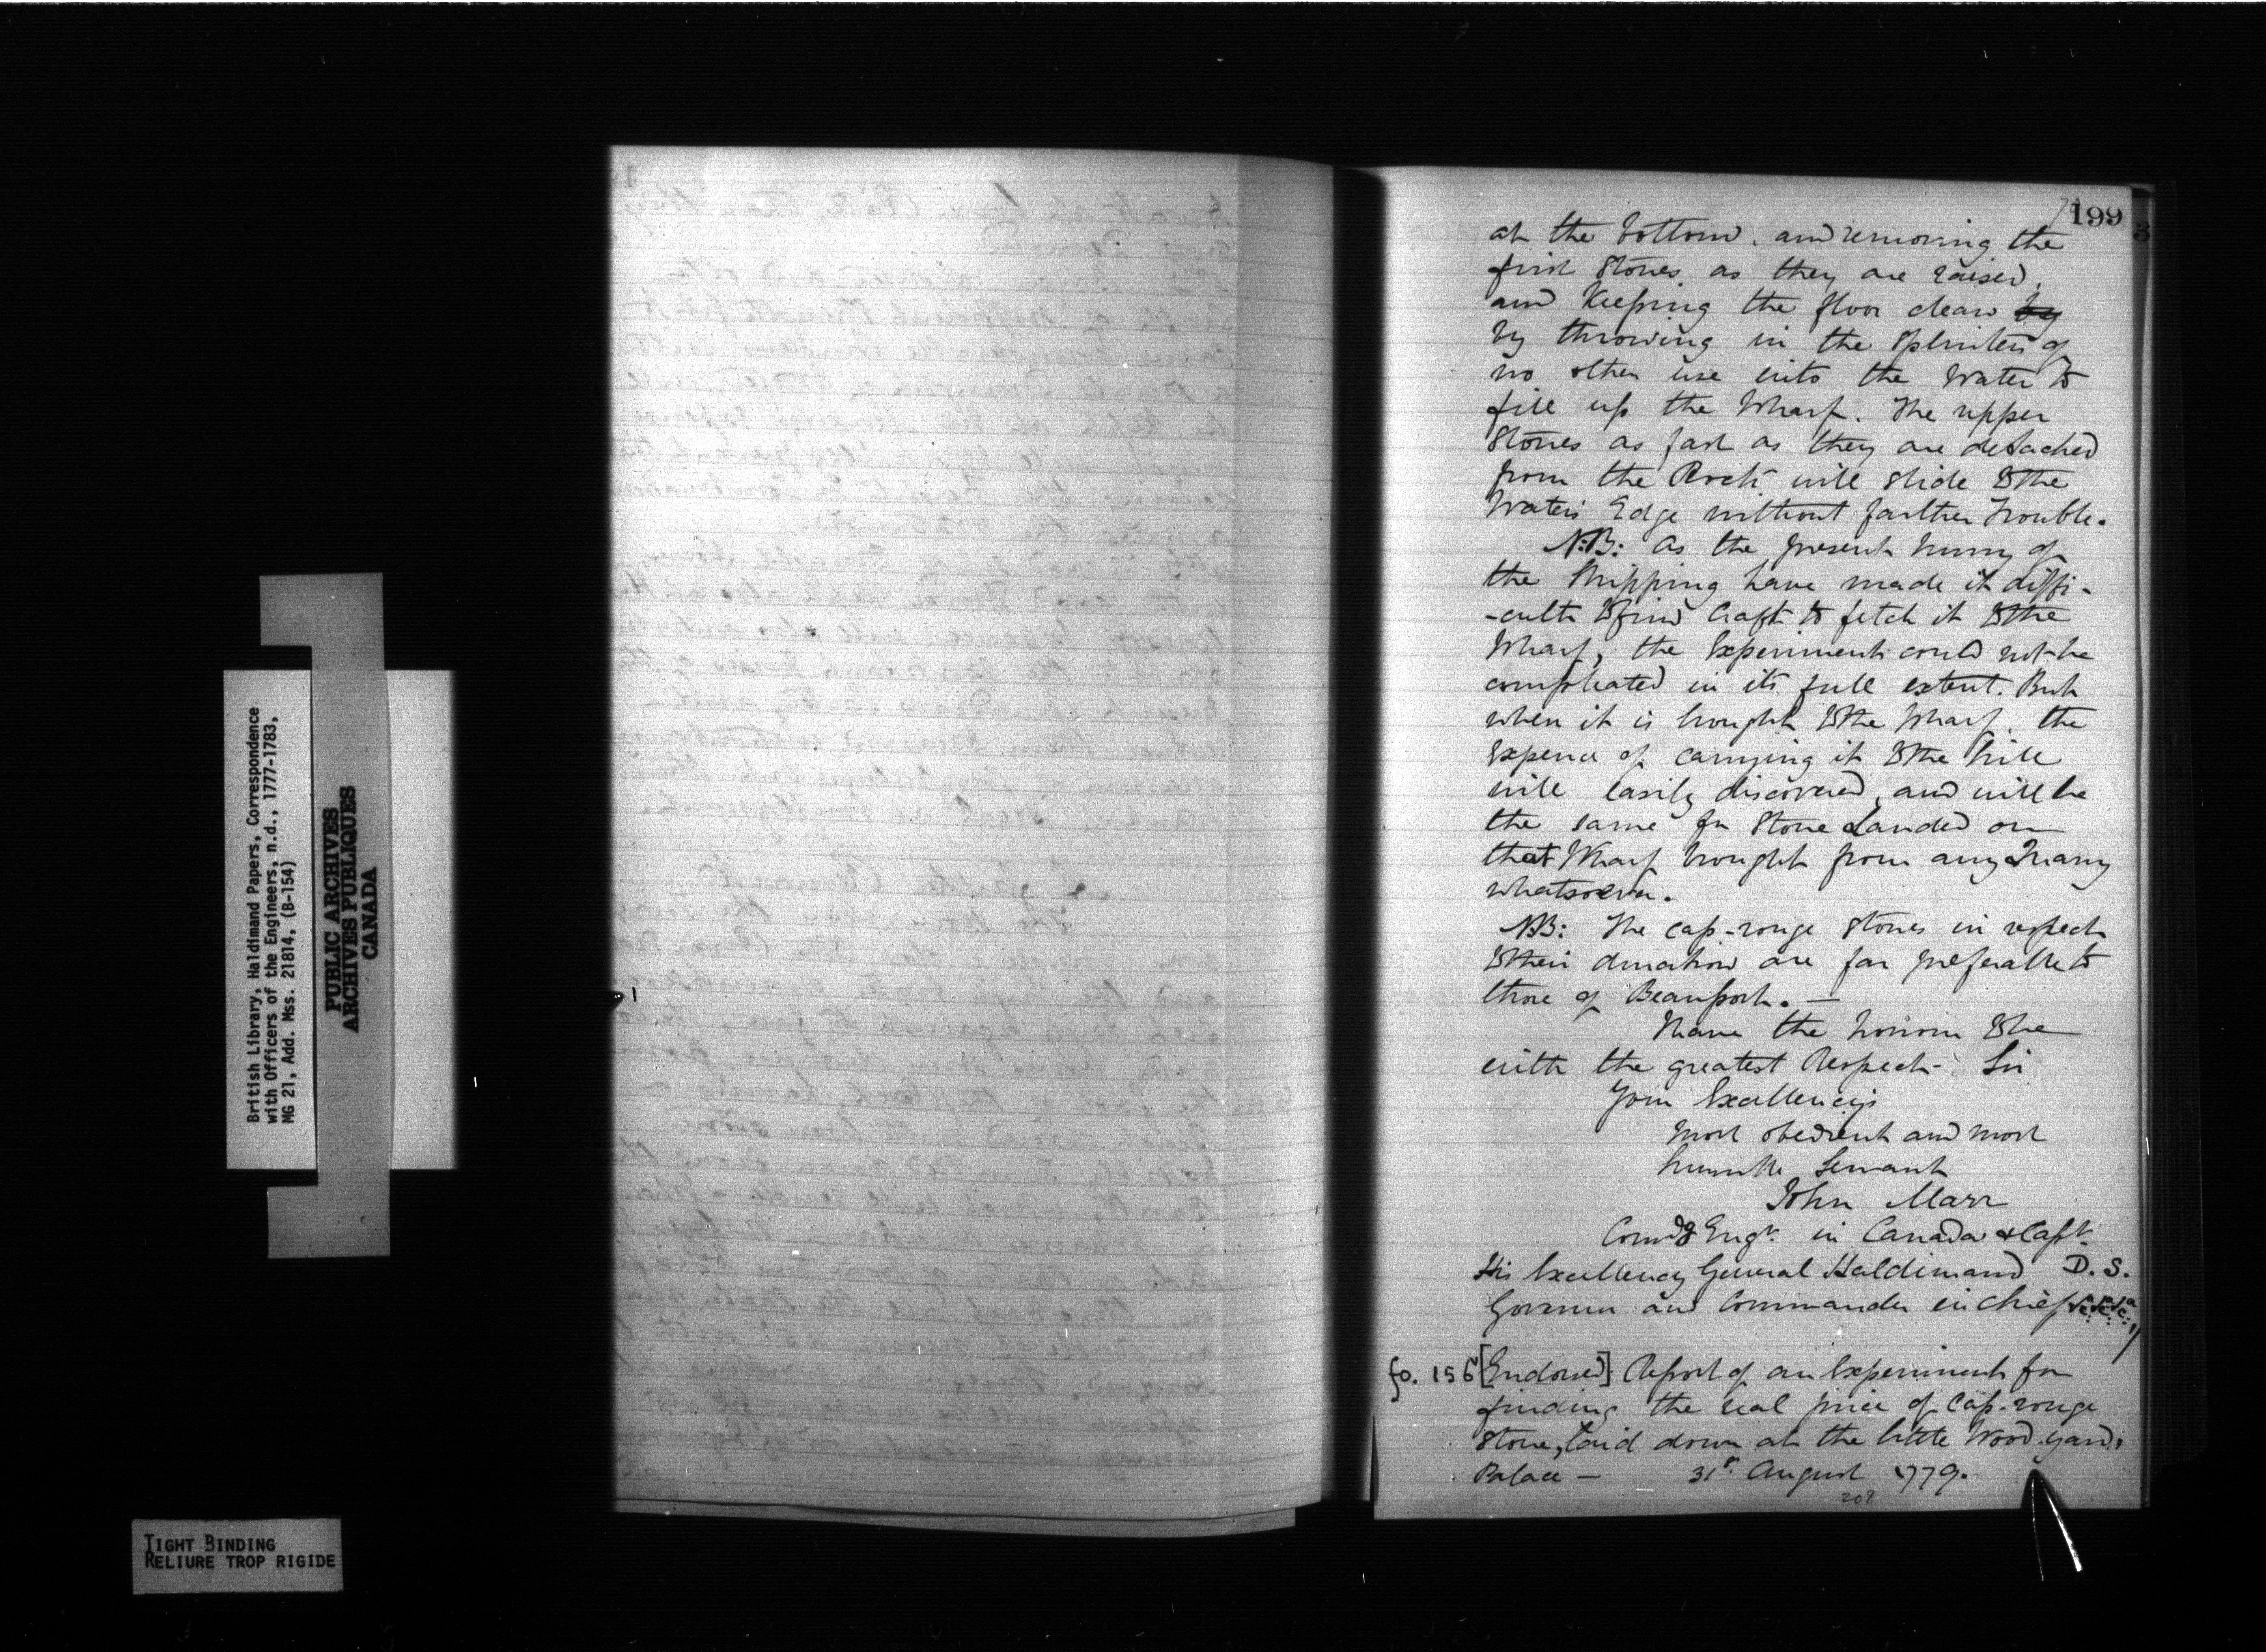 199
at the bottom. and removing the
first Stones as they are raised,
and Keeping the floor clean by
by throwing in the Splinters of
no other use into the Water to
fill up the Wharf. The upper
Stones as fast as they are detached
from the Rock will slide to the
Water's Edge without farther Trouble.
N:B: As the present hurry of
the Shipping have made it diffi-
-cult to find Craft to fetch it to the
Wharf, the Experiment could not be
compleated in its full extent. But
when it is brought to the Wharf, the
Expence of carrying it to the hill
will easily discovered, and will be
the same for Stone Landed on
that Wharf brought from any Quarry
whatsoever.
NB: The cap-rouge Stones in respect
to their duration are far preferable to
those of Beauport. —
I have the honour to be
with the greatest Respect Sir
Your Excellency's
most obedient and most
humble Servant
John Marr
Comdg Engr. in Canada & Capt.
His Excellency General Haldimand D. S.
Governor and Commander in Chief &c. &c. &c.
fo. 156 [Endorsed] Report of an Experiment for
finding the real price of Cap-rouge
Stone, laid down at the little Wood-yard,
Palace — 31st. August 1779.
208
British Library, Haldimand Papers, Correspondence
with Officers of the Engineers, n.d., 1777-1783,
MG 21, Add. Mss. 21814, (B-154)
PUBLIC ARCHIVES
ARCHIVES PUBLIQUES
CANADA
TIGHT BINDING
RELIURE TROP RIGIDE